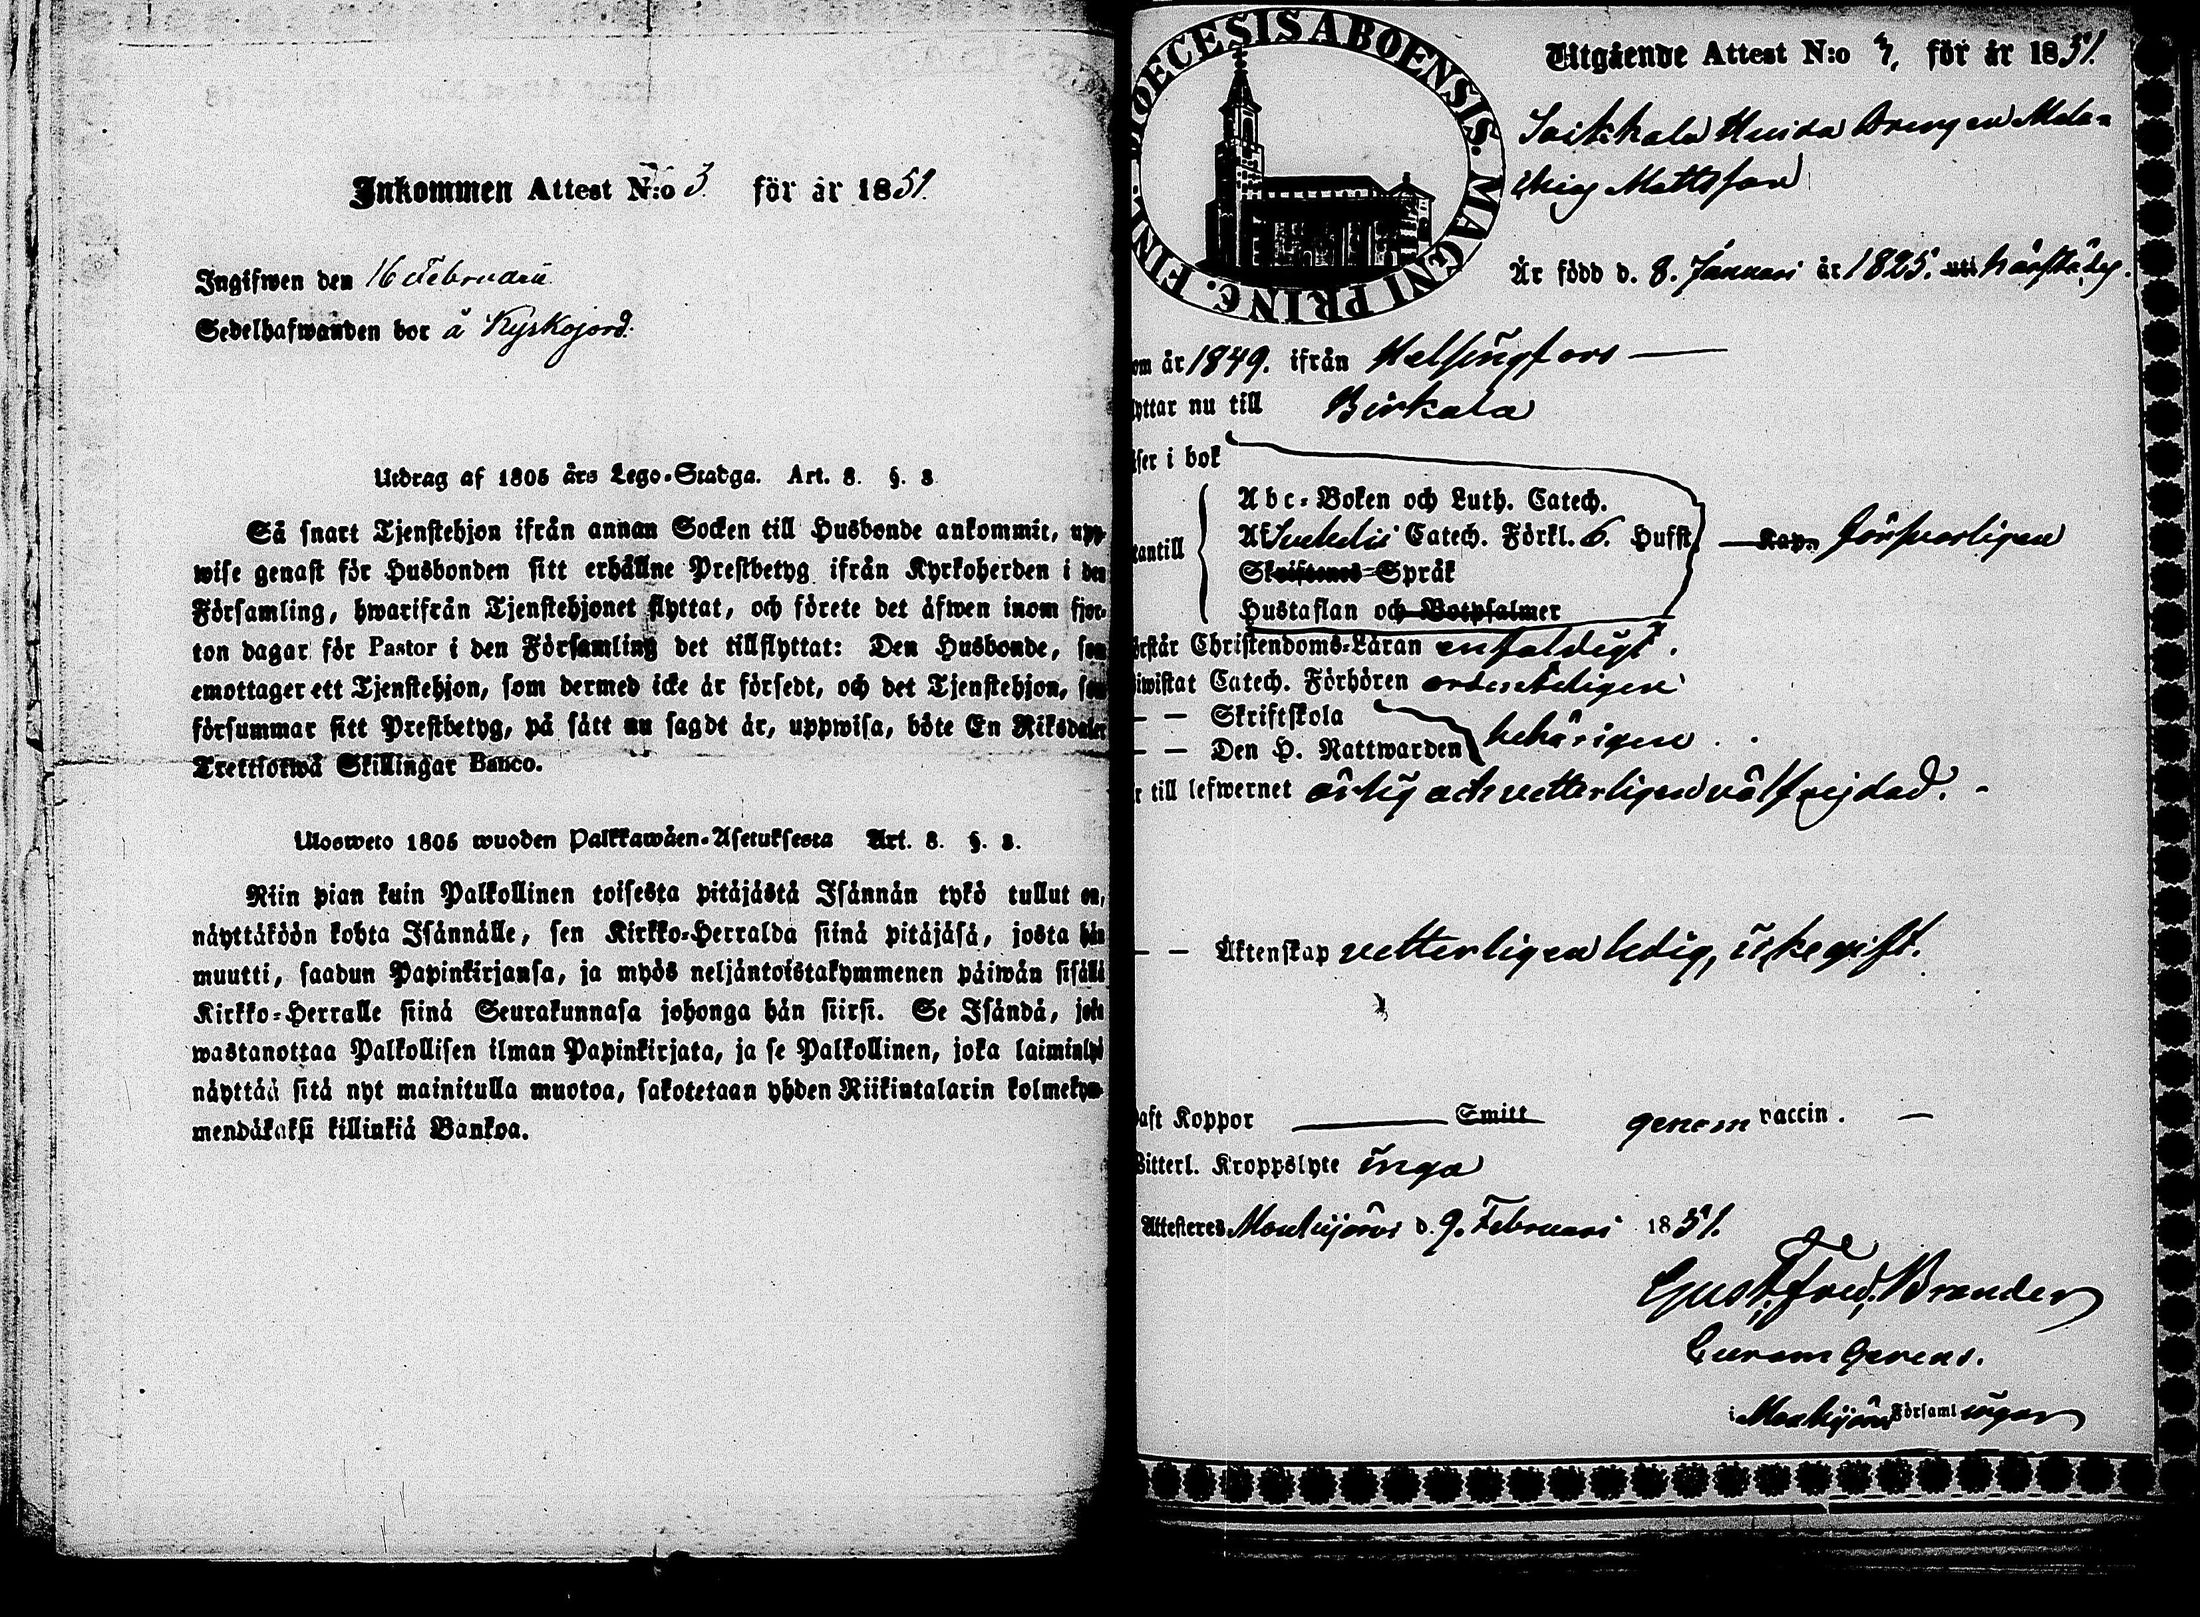 Inkommen Attest N:o 3. för år 1851.
Ingifwen den 16 Februarii
Sedelhafwanden bor å Kyrkojord.
Utdrag af 1805 års Lego-Stadga. Art. 8. §. 8
Så snart Tjenstehjon ifrån annan Socken till Husbonde ankommit, upp-
wise genast för Husbonden sitt erhållne Prestbetyg ifrån Kyrkoherden i den
Församling, hwarifrån Tjenstehjonet flyttat, och förete det äfwen inom fjor-
ton dagar för Pastor i den Församling det tillflyttat: Den Husbonde, som
emottager ett Tjenstehjon, som dermed icke är försedt, och det Tjenstehjon, som
försummar sitt Prestbetyg, på sätt nu sagdt är, uppwisa, böte En Riksdaler
Trettiotwå Skillingar Banco.
Ulosweto 1805 wuoden Palkkawäen-Asetuksesta Art. 8. §. 8.
Niin pian kuin Palkollinen toisesta pitäjästä Isännän tykö tullut on,
näyttäköön kohta Isännälle, sen Kirkko-Herralda siinä pitäjäsä, josta hän
muutti, saadun Papinkirjansa, ja myös neljäntoistakymmenen päiwän sisällä
Kirkko-Herralle siinä Seurakunnasa johonga hän siirsi. Se Isändä, joka
wastanottaa Palkollisen ilman Papinkirjata, ja se Palkollinen, joka laiminlyö
näyttää sitä nyt mainitulla muotoa, sakotetaan yhden Riikintalarin kolmekym-
mendäkaksi killinkiä Bankoa.
DIOECESIS ABOENSIS. MAGNI PRINC. FINL.
Utgående Attest N:o för år 1851.
Mattsson
Är född d. 8. Januari år 1825. uti härstädes.
om år 1849. ifrån Helsingfors
yttar nu till Birkala
äser i bok
Abc-Boken och Luth. Catech.
Af Catech. Förkl. 6. Hufst.
tantill
Kap. försvarligen
Skriftenes-Språk
Hustaflan och Botpsalmer
örstår Christendoms-Läran enfaldigt.
iwistat Catech. Förhören ordenteligen
— — Skriftskola
— — Den H. Nattwarden behörigen
r till lefwernet ärlig och vetterligen välfrejdad.
— — Äktenskap vetterligen ledig, icke gift.
aft Koppor Smitt genom vaccin.
Witterl. Kroppslyte inga
Attesteres Mouhijärvi d. 9. Februari 1851.
Gust. Fred. Brander
Curam Gerens.
i Mouhijärvi Församlingar